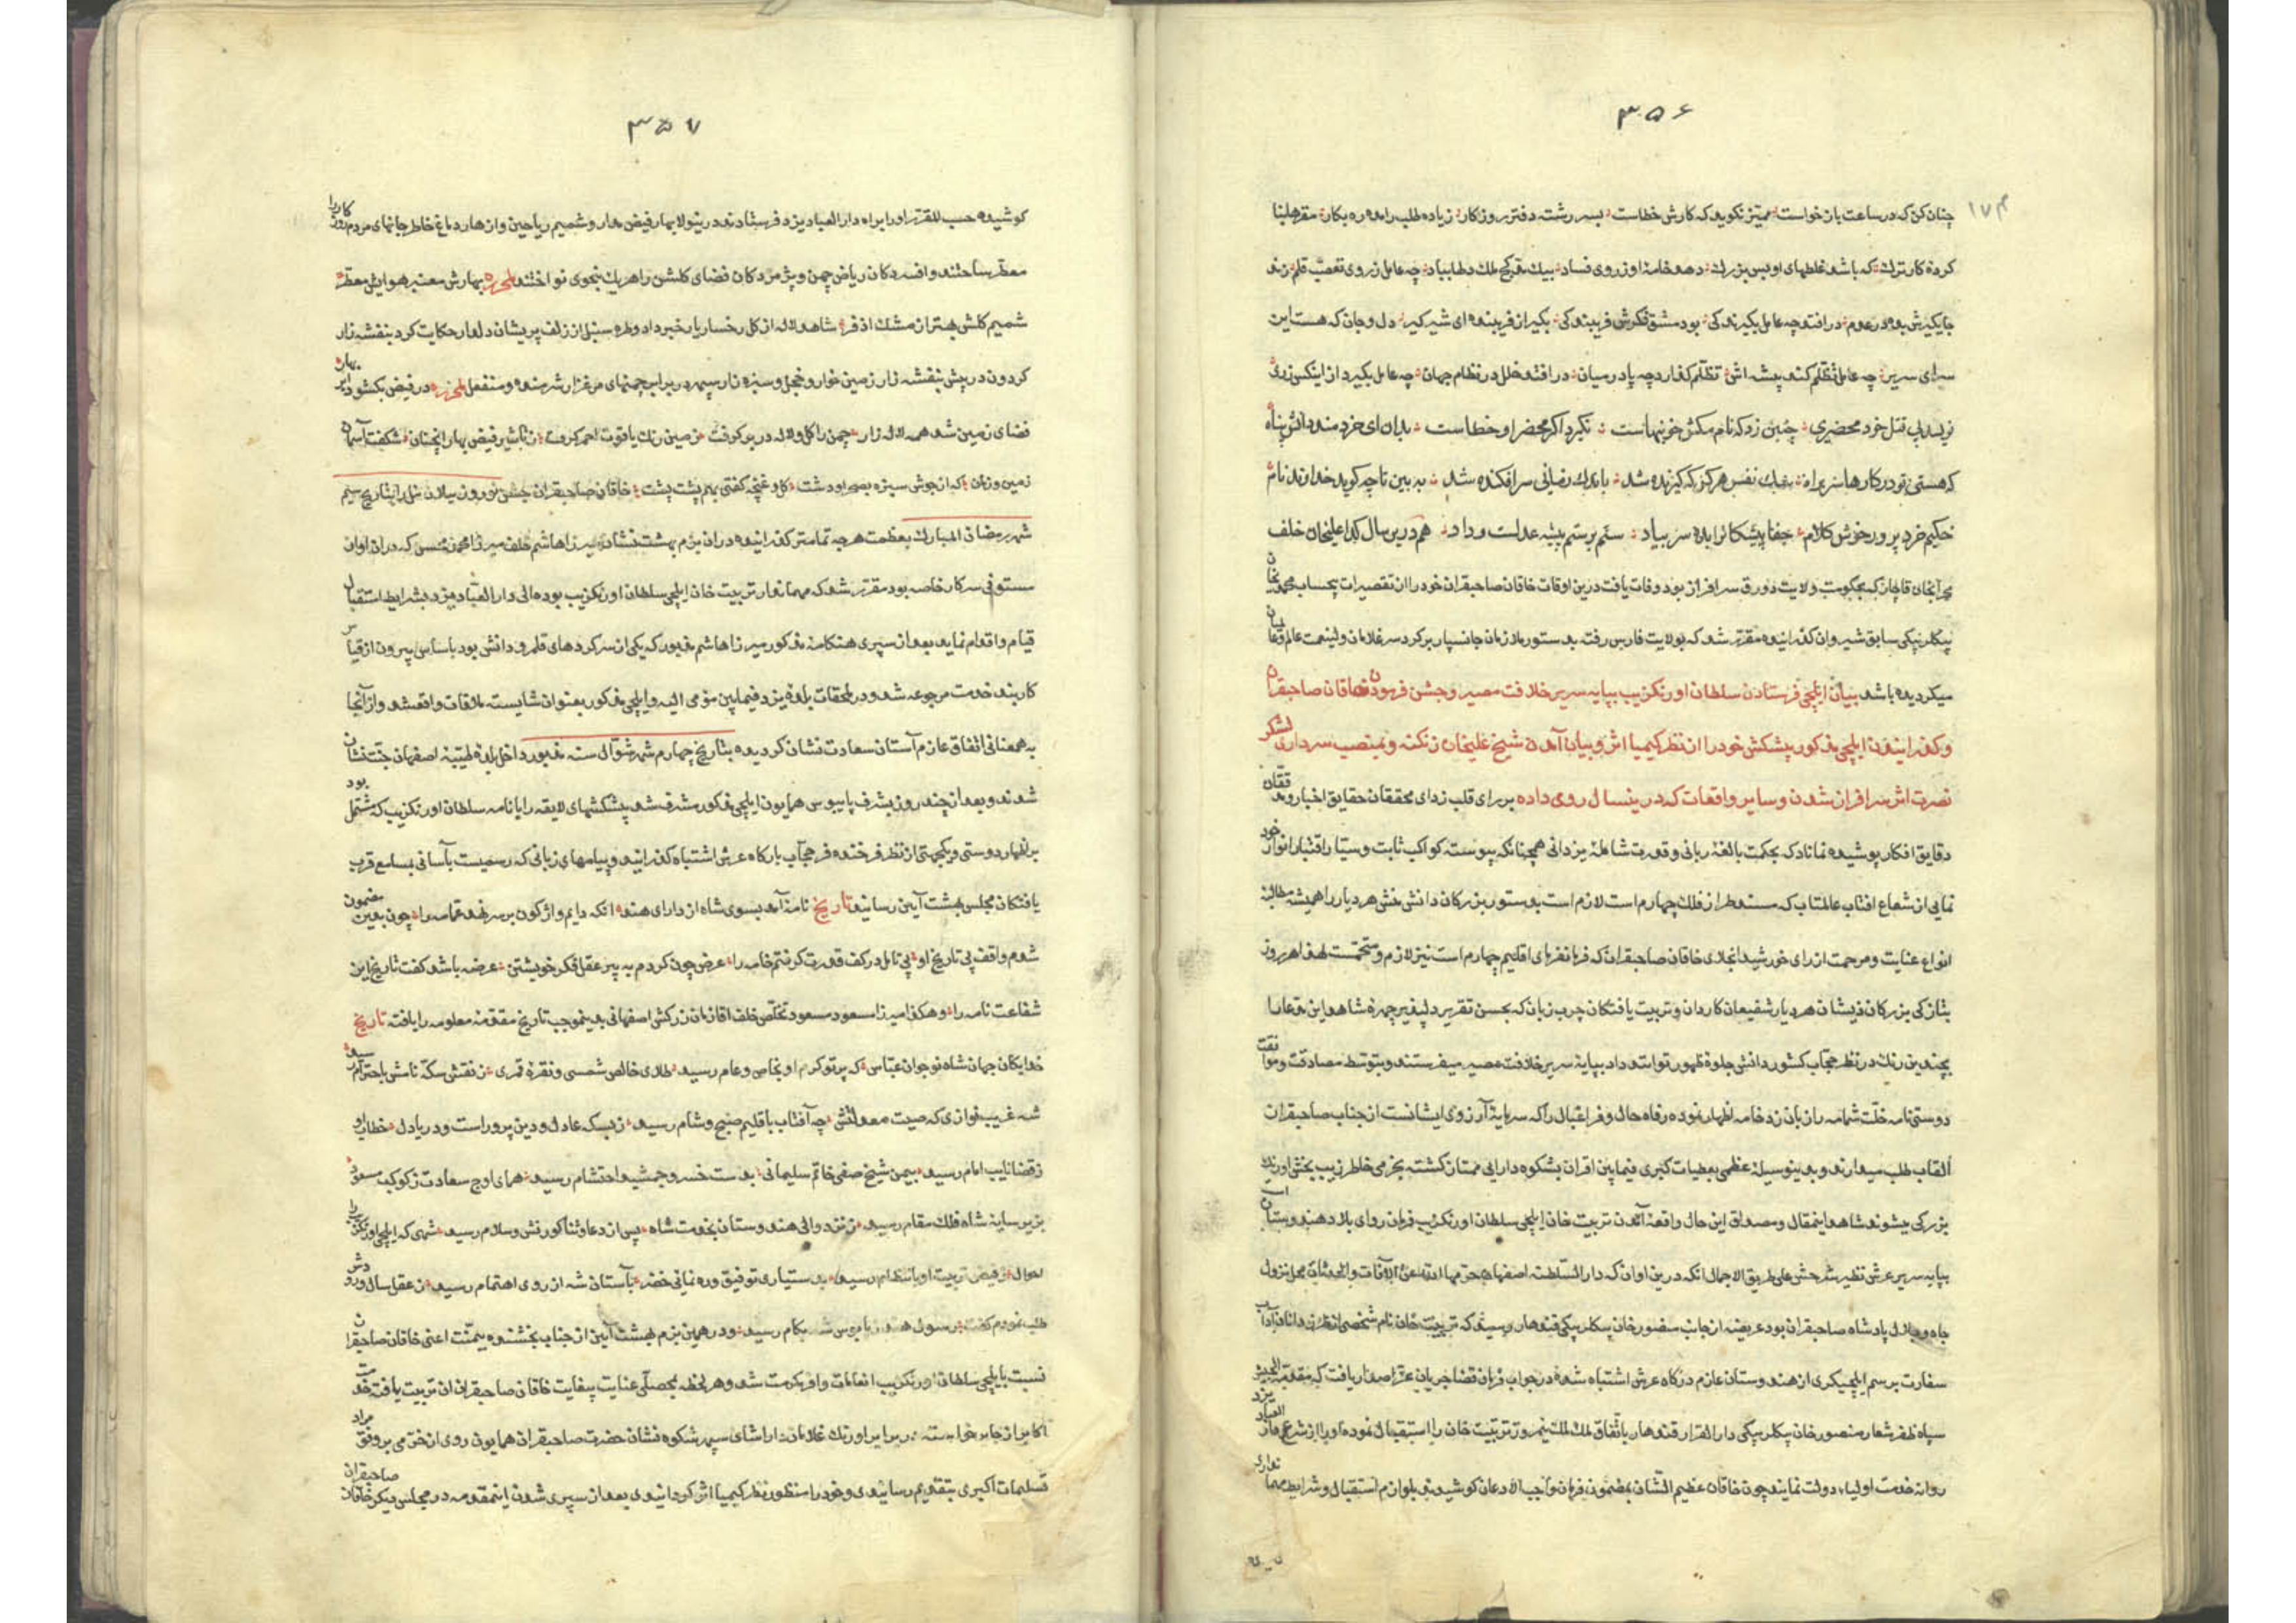 ۳۵۶
چنان کن که در ساعت بازخواست ممیز نکوید که کارش خطاست بسر رشته دفتر روزکار زیاده طلب را مده ره بکار
کرده کار ترک که باشد غلطهای او بس بزرک دهد خامه او ز روی فساد بیک ملک چه عامل ز روی تعصب قلم زند
در افتد چه عامل بکیر ند کی بود مشق فکرش فریبند کی بکیر از فریبنده ای شیر کیر دل و جان که هست این
سرای سریر چه عامل تظلم کند پیشه اش تظلم در میان در افتد خلل در نظام جهان چه عامل بکیرد از اینکس زری
نویسد پی قتل خود محضری چنین زد که نام مکش خونبهاست نکیرد اکر محضر او خطاست بدان ای خردمند دانش پناه
که هستی تو در کارها سر براه نفس هر کز که کزیده شد باندک زمانی سرافکنده شد به بین تا چه کوید خداوند نام
حکیم خرد پرور خوش کلام جفا پیشکانرا بده سر بباد ستم بر ستم پیشه عدلست و داد هم درین سال کلبعلیخان خلف
قاجار که بحکومت ولایت دورق سرافراز بود وفات یافت درین اوقات خاقان صاحبقران خود را از تقصیرات
بیکلربیکی سابق شیروان کذرانیده مقرر شد که بولایت فارس رفته بدستور ملازمان جانسپار بر کرد سر غلامان ولینعمت عالم
میکردیده باشد بیان ایلچی فرستادن سلطان اورنکزیب بپایه سریر خلافت مصیر و جشن فرمودن خاقان صاحبقران
و کذرانیدن ایلچی مذکور پیشکش خود را از نظر کیمیا اثر و بیان آمدن شیخ علیخان زنکنه و بمنصب سرداری لشکر
نصرت اثر سرافراز شدن و سایر واقعات که درینسال روی داده بر رای قلب زدای محققان حقایق اخبار و مدققان
دقایق افکار پوشیده نماناد که بحکمت بالغه ربانی و قدرت شامله یزدانی همچنانکه پیوسته کواکب ثابت و سیار اقتباس انوار خود
نمایی از شعاع آفتاب عالمتاب که مسند طراز فلک چهارم است لازم است بدستور بزرکان دانش منش هر دیار را همیشه مطالبه
انواع عنایت و مرحمت از رای خورشید انجلای خاقان صاحبقران که فرمانفرمای اقلیم چهارم است نیز لازم و متحتمست لهذا هر روز
بتازکی بزرکان ذیشان هر دیار شفیعان کاردان و تربیت یافتکان چرب زبان که بحسن تقریر دلپذیر چهره شاهد این مدعا را
بچندین رنک در نظر حجاب کشور دانش جلوه ظهور توانند داد بپایه سریر خلافت مصیر میفرستند و بتوسط مصادقت و موافقت
دوستی نامه خلت شمامه را زبانزد خامه اظهار نموده رفاه حال و فراغبال را که سرمایه آرزوی ایشانست از جناب صاحبقران
القاب طلب میدارند و بدینوسیله عظمی بعطیات کبری فیمابین اقران بشکوه دارایی ممتاز کشته بخرمی خاطر زیب بخش اورنک
بزرکی میشوند شاهد اینمقال و مصداق این حال واقعه آمدن تربیت خان ایلچی سلطان اورنکزیب فرمان روای بلاد هندوستان است
بپایه سریر عرش نظیر شرحش علی طریق الاجمال انکه درین اوان که دار السلطنه اصفهان محل نزول
جاه و جلال پادشاه صاحبقران بود عریضه از جانب منصور خان بیکلربیکی قندهار رسید که تربیت خان نام شخصی از
سفارت برسم ایلچیکری از هندوستان عازم درکاه عرش اشتباه شده در جواب فرمان قضا جریان عز اصدار یافت که مقدمة الجیش
سپاه ظفر شعار منصور خان بیکلربیکی دار القرار قندهار باتفاق ملک نیمروز تربیت خان را استقبال نموده او را از شرع
روانه خدمت اولیاء دولت نمایند چون خاقان عظیم الشان بمضمون فرمان واجب الاذعان کوشیدند بلوازم استقبال و شرایط مهمانداری
۳۵۷
کوشیده حسب المقرر او را براه دار العباد یزد فرستادند درینولا بهار فیض و شمیم ریاحین و ازهار دماغ خاطر مردم روزکار را
معطر ساختند و افسردکان ریاض چمن و پژمردکان فضای کلشن را هریک بنحوی نواختند لمحرره بهارش معنبر هوایش معطر
شمیم کلش بهتر از مشک اذفر شاهد لاله از کل رخسار یار خبر داد و طره سنبل از زلف پریشان دلدار حکایت کرد بنفشه زار
کردون در پیش بنفشه زار زمین خوار و خجل و سبزه زار سپهر در برابر چمنهای مرغزار شرمنده و منفعل لمحرره در فیض بکشود ابر بهار
فضای زمین شد همه لاله زار چمن را کل و لاله در بر کرفت زمین رنک یاقوت احمر کرفت ز تاثیر فیض بهار انچنان شکفت آسمان
زمین و زمان که از جوش سبزه بصحرا و دشت کل و غنچه کفتی بهم پشت پشت خاقان صاحبقران جشن نوروز را بتاریخ سیم
شهر رمضان المبارک بعظمت هر چه تمامتر کذرانیده در ان بزم بهشت نشان میرزا هاشم خلف میرزا محمد محسن که در ان اوان
مستوفی سرکار خاصه بود مقرر شد که مهماندار تربیت خان ایلچی سلطان اورنکزیب بوده الی دار العباد یزد بشرایط استقبال
قیام و اقدام نماید بعد از سپری هنکامه مذکور میرزا هاشم مذبور که یکی از سرکردهای قلمرو دانش بود باساس بیرون از قیاس
کاربند خدمت مرجوعه شد و در ملحقات بلده یزد فیمابین مومی الیه و ایلچی مذکور بعنوان شایسته ملاقات واقعشد و از آنجا
به همعنانی اتفاق عازم آستان سعادت نشان کردیده بتاریخ چهارم شهر شوال سنه مذبور داخل بلده طیبه اصفهان جنت نشان
شدند و بعد از چند روز بشرف پابوسی همایون ایلچی مذکور مشرف شد پیشکشهای لایقه را با نامه سلطان اورنکزیب که مشتمل بود
بر اظهار دوستی و یکجهتی از نظر فرخنده فر حجاب بارکاه عرش اشتباه کذرانید و پیامهای زبانی که رسمیست باسانی بمسامع قرب
یافتکان مجلس بهشت آیین رسانید تاریخ نامه آمد بسوی شاه از دارای هند انکه دایم واژکون بر سر نهد عمامه را چون بعین مضمون
شدم واقف پی تاریخ او بی تامل در کف قدرت کرفتم خامه را عرض چون کردم به پیر عقل فکر خویشتن عرضه باشد کفت تاریخ این
شفاعت نامه را و هکذا میرزا مسعود مسعود تخلص خلف اقا زمان زرکش اصفهانی بدینموجب تاریخ مقدمه معلومه را یافته تاریخ
خدایکان جهان شاه نوجوان عباس که پرتو کرم او بخاص و عام رسید طلای خالص شمسی و نقره قمری ز نقش سکه نامش باحترام رسید
شه غریب نوازی که صیت معدلتش چه آفتاب باقلیم صبح و شام رسید ز بسکه عادل و دین پرور است و دریادل خطاب او
ز قضا نایب امام رسید بیمن شیخ صفی خاتم سلیمانی بدست خسرو جمشید احتشام رسید همای اوج سعادت ز کوکب مسعود
بزیر سایه شاه فلک مقام رسید ز نزد والی هندوستان بخدمت شاه پس از دعا و ثنا کورنش و سلام رسید شهی که ایلچی اورنکزیب را
احوال ز فیض تربیت او بانتظام رسید بدستیاری توفیق و رهنمایی خضر بآستان شه از روی اهتمام رسید ز عقل سال ورودش
طلب نمودم کفت رسول هند بکام رسید و در همین بزم بهشت آیین از جناب بخشنده بیمنت اعنی خاقان صاحبقران
نسبت بایلچی سلطان اورنکزیب انعامات وافر مکرمت شد و هر لحظه عنایت بیغایت خاقان صاحبقران ان تربیت یافته
اکابر از جا برخاسته در برابر اورنک غلامان دارا شان سپهر شکوه نشان حضرت صاحبقران همایون روی از خرمی بر وفق مراد
تسلیمات اکبری بتقدیم رسانیدی و خود را منظور نظر کیمیا اثر کردانیدی بعد از سپری شدن اینمقدمه در مجلس دیکر خاقان صاحبقران